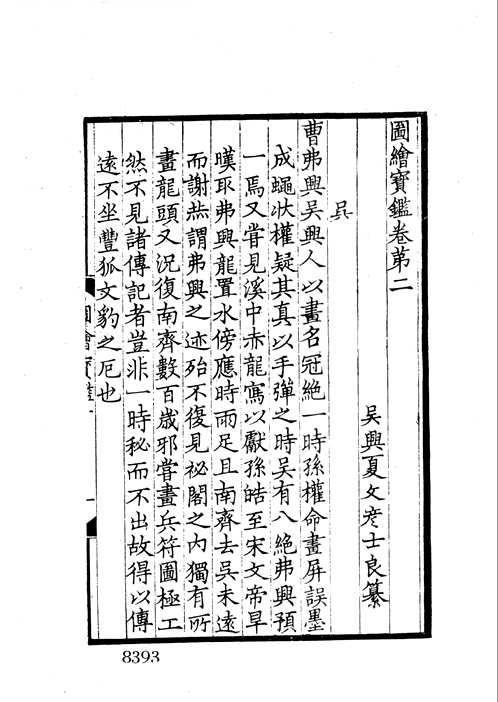 圖繪寶鑑卷第二
吴興夏文彦士良纂
吴
曹弗興吴興人以畫名冠絶一時孫權命畫屏誤墨
成蠅狀權疑其真以手彈之時吴有八絶弗興預
一焉又甞見溪中赤龍寫以獻孫皓至宋文帝早
暵取弗興龍置水傍應時雨足且南齊去吴未遠
而謝赫謂弗興之迹殆不復見祕閣之内獨有所
畫龍頭又況復南齊數百歲邪甞畫兵符圖極工
然不見諸傳記者豈非一時秘而不出故得以傳
遠不坐豐狐文豹之厄也
圖繪寶鑑
一
8393